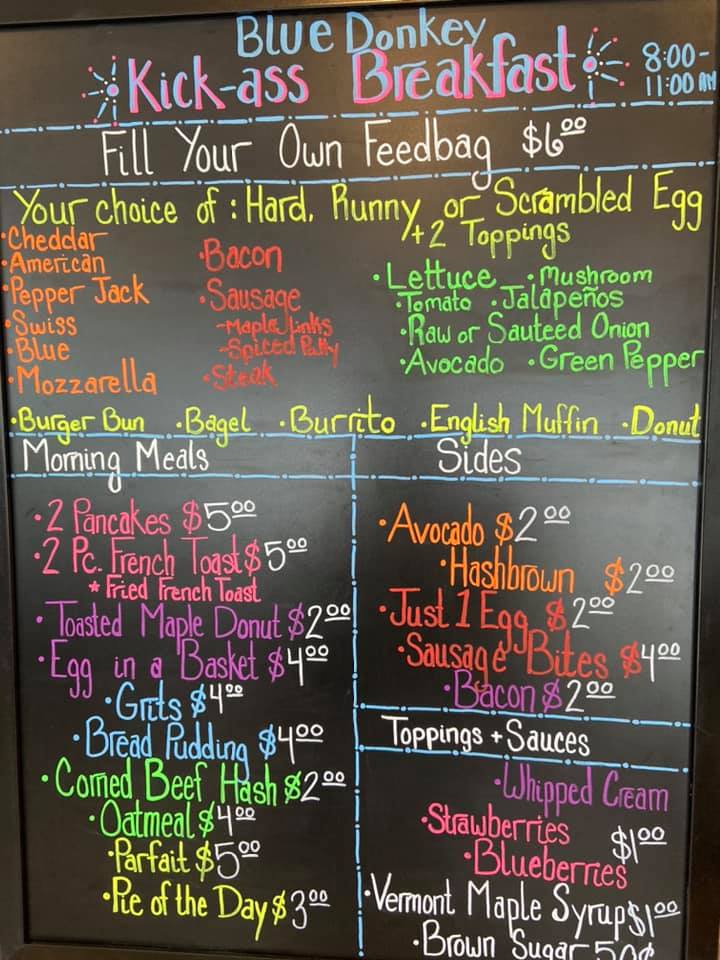 Blue Donkey
Kick-ass Breakfast
8:00-
11:00 AM
Fill Your Own Feedbag $6.00
Your choice of: Hard, Runny, or Scrambled Egg
+2 Toppings
•Cheddar
•American
•Pepper Jack
•Swiss
•Blue
•Mozzarella
•Bacon
•Sausage
-Maple Links
-Spiced Patty
•Steak
•Lettuce •Mushroom
•Tomato •Jalapeños
•Raw or Sauteed Onion
•Avocado •Green Pepper
•Burger Bun •Bagel •Burrito •English Muffin •Donut
Morning Meals
•2 Pancakes $5.00
•2 Pc. French Toast $5.00
*Fried French Toast
•Toasted Maple Donut $2.00
•Egg in a Basket $4.00
•Grits $4.00
•Bread Pudding $4.00
•Corned Beef Hash $2.00
•Oatmeal $4.00
•Parfait $5.00
•Pie of the Day $3.00
Sides
•Avocado $2.00
•Hashbrown $2.00
•Just 1 Egg $2.00
•Sausage Bites $4.00
•Bacon $2.00
Toppings + Sauces
•Whipped Cream
•Strawberries $1.00
•Blueberries
•Vermont Maple Syrup $1.00
•Brown Sugar 50¢